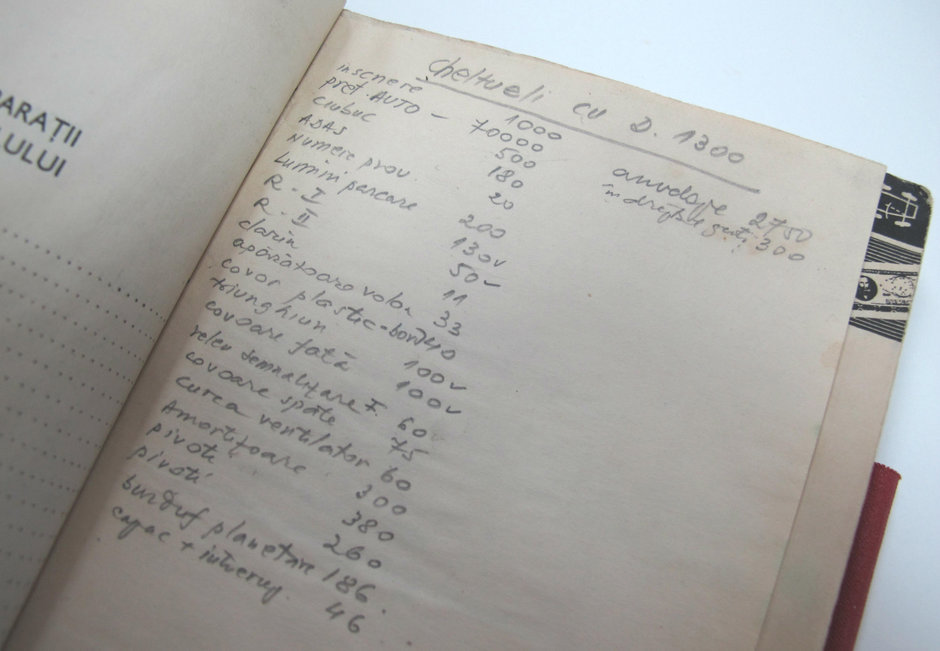 ARAȚII
LULUI
Cheltueli cu D. 1300
înscriere 1000
preț AUTO - 70000
ciubuc 500
ADAS 180
Numere prov. 20
Lumini parcare 200
R - I 130
R - II 50
claxon 11
apărătoare volan 33
covor plastic-bord 40
triunghiuri 100
covoare față 100
releu semnalizare F. 60
covoare spate 75
curea ventilator 60
Amortizoare 300
pivoti 380
pivoti 260
burduf planetare 186.
capac + 46
anvelope 2750
300